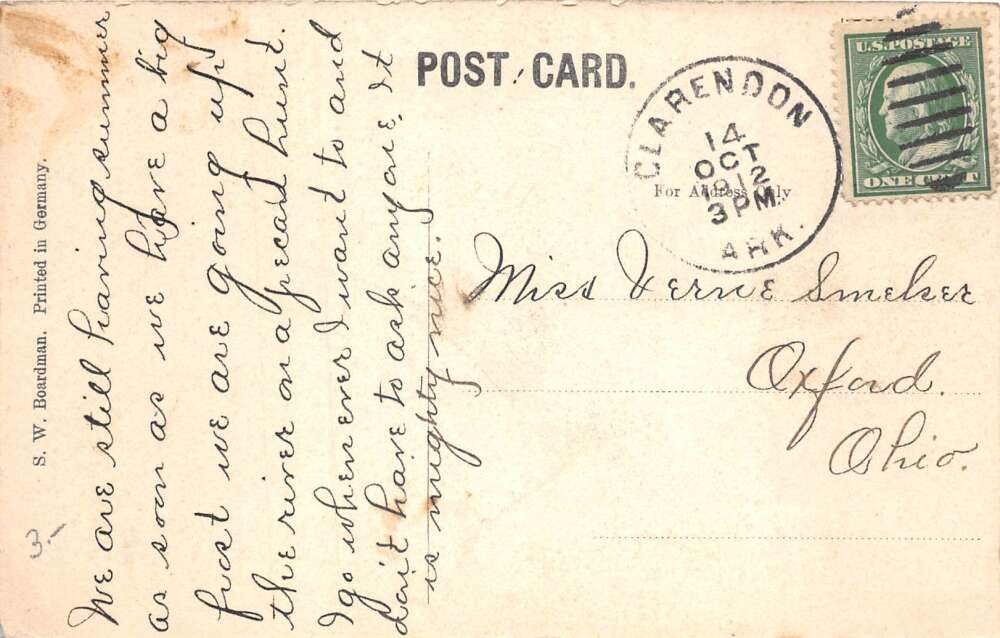 We are still having summer
as soon as we have a big
frost we are going up
the river on a pecan hunt.
I go whenever I want to and
don't have to ask anyone. It
is mighty nice.
S. W. Boardman. Printed in Germany.
3.-
POST CARD.
For Address Only
CLARENDON
14
OCT
1912
3 PM.
ARK.
U.S. POSTAGE
ONE CENT
Miss Verne Smelser
Oxford.
Ohio.